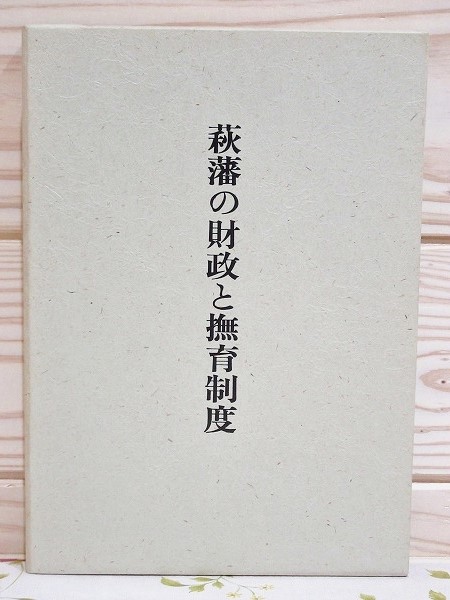 萩藩の財政と撫育制度